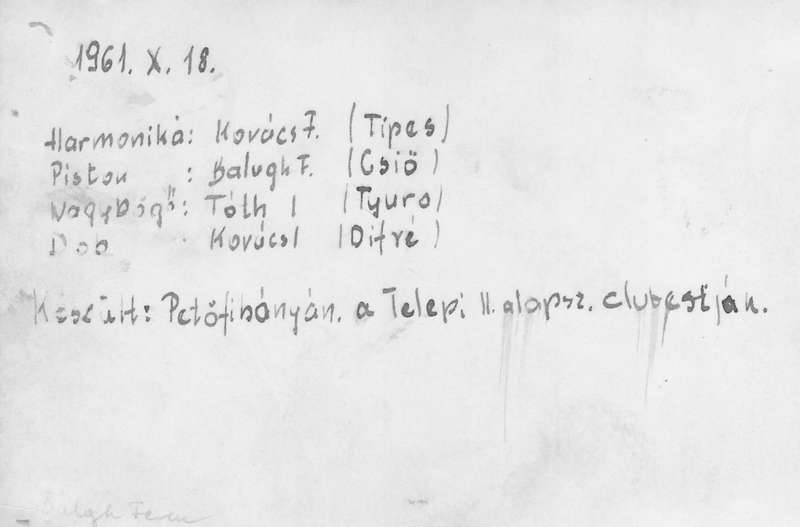 1961. X. 18.
Harmonika: Kovács F. (Tipes)
Piston : Balogh F. (Csiö)
Nagybögő: Tóth I (Tyuro)
Dob : Kovács I (Difré)
Készült: Petőfibányán. a Telepi II. alapsz. clubestján.